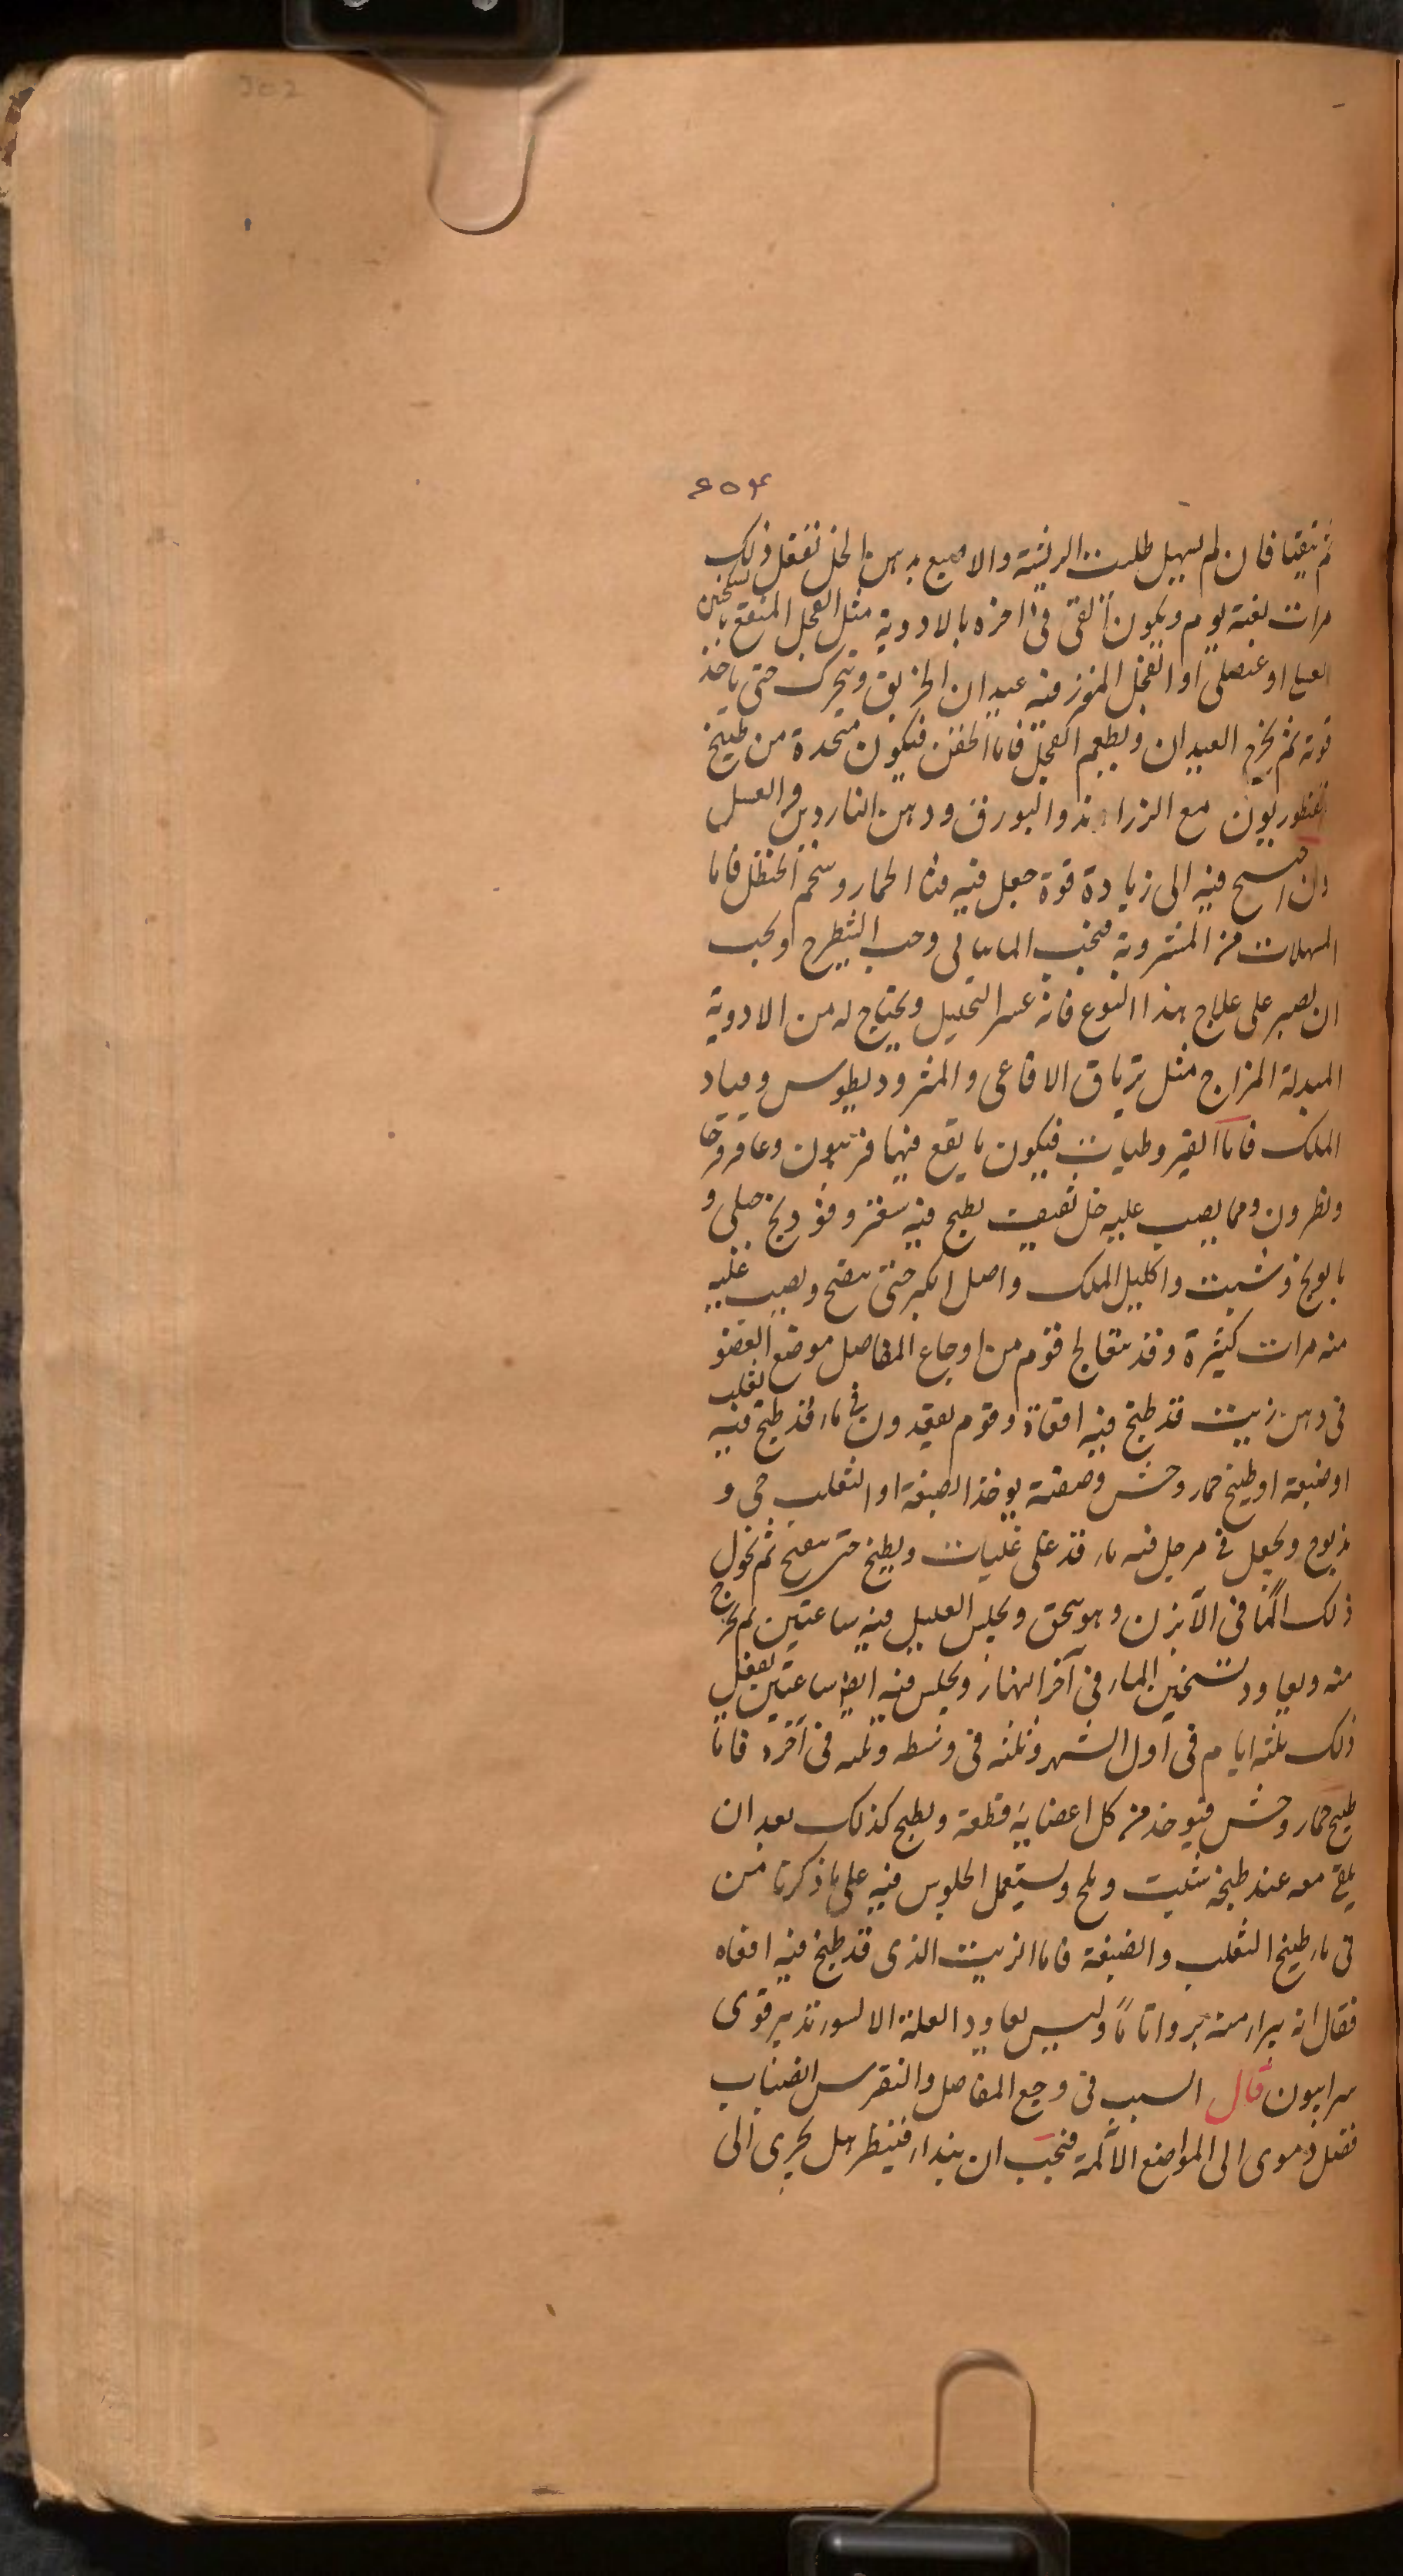 302
٤٥٤
ثم يتقيا فان لم يسهل طليت الريشة والاصبع بدهن الحل تفعل ذلك
مرات بقية يوم ويكون القى فى اخره بالادوية مثل الفجل المنقع بالسكنجبين
او عنصلى او الفجل المغرز فيه عيدان الخربق ويترك حتى ياخذ
قوته ثم يخرج العيدان ويطعم الفجل فاما الحقن فيكون متخذة من طبيخ
القنطوريون مع الزراوند والبورق ودهن الناردين والعسل
وان احتيج فيه الى زيادة قوة جعل فيه قثا الحمار وشحم الحنظل فاما
المسهلات من المشروبة فيجب وحب الشيطرج ويجب
ان يصبر على علاج هذا النوع فانه عسر التحليل ويحتاج له من الادوية
المبدلة المزاج مثل ترياق الافاعى والمثروديطوس
الملك فاما القيروطيات فيكون ما يقع فيها فربيون وعاقرقرحا
ونطرون ومما يصب عليه خل ثقيف يطبخ فيه سعتر وفوذنج جبلى و
بابونج وشبت واكليل الملك واصل الكبر حتى ينضج ويصب عليه
منه مرات كثيرة وقد يتعالج قوم من اوجاع المفاصل موضع العضو
فى دهن زيت قد طبخ فيه افعاة وقوم يقعدون فى ماء قد طبخ فيه ثعلب
او ضبعة او طبيخ حمار وحش وصفته يوخذ الضبعة او الثعلب حى و
مذبوح ويجعل فى مرجل فيه ماء قد غلى غليات ويطبخ حتى ينضج ثم يحول
ذلك الماء فى الآبزن وهو سخن ويجلس العليل فيه ساعتين ثم يخرج
منه ويعاود تسخين الماء فى آخر النهار ويجلس فيه ايضا ساعتين يفعل
ذلك ثلثه ايام فى اول الشهر وثلثه فى وسطه وثلثه فى آخره فاما
طبيخ حمار وحش فيوخذ من كل اعضايه قطعة ويطبخ كذلك بعد ان
يلقى معه عند طبخه شبت وملح ويستعمل الجلوس فيه على ما ذكرنا من
فى ماء طبيخ الثعلب والضبعة فاما الزيت الذى قد طبخ فيه افعاه
فقال انه يبراء منه بروا تاما وليس يعاود العلة الا لسوء تدبير قوى
سرابيون قال السبب فى وجع المفاصل والنقرس انصباب
فضل دموى الى المواضع الآلمة فيجب ان يبداء فينظر هل يجرى الى